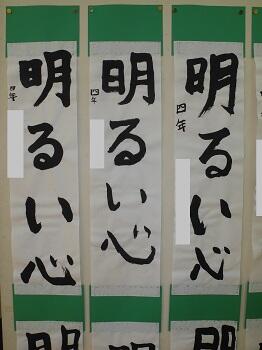 明るい心
四年
明るい心
四年
明るい心
四年
明
明
明